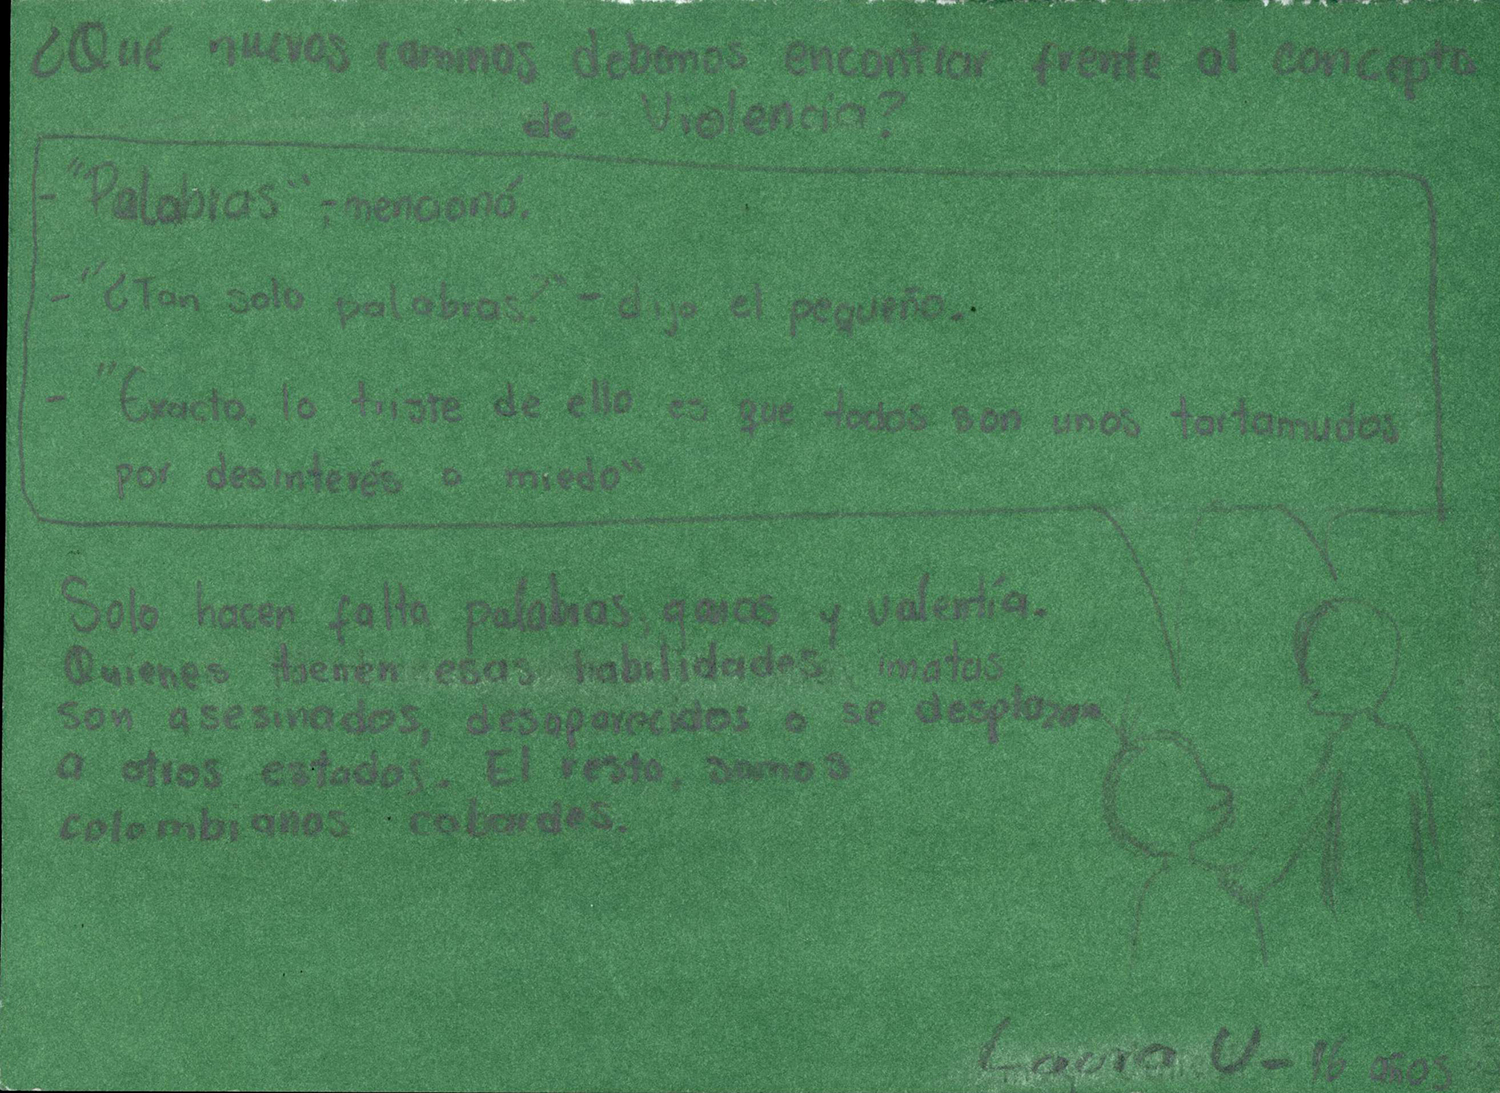 ¿Qué nuevos caminos debemos encontrar frente al concepto
de Violencia?
- "Palabras", -mencionó.
- "¿Tan solo palabras?" - dijo el pequeño.
- "Exacto, lo triste de ello es que todos son unos tartamudos
por desinterés o miedo"
Solo hacen falta palabras, ganas y valentía.
Quienes tienen esas habilidades innatas
son asesinados, desaparecidos o se desplazan
a otros estados. El resto, somos
colombianos cobardes.
Laura U - 16 años